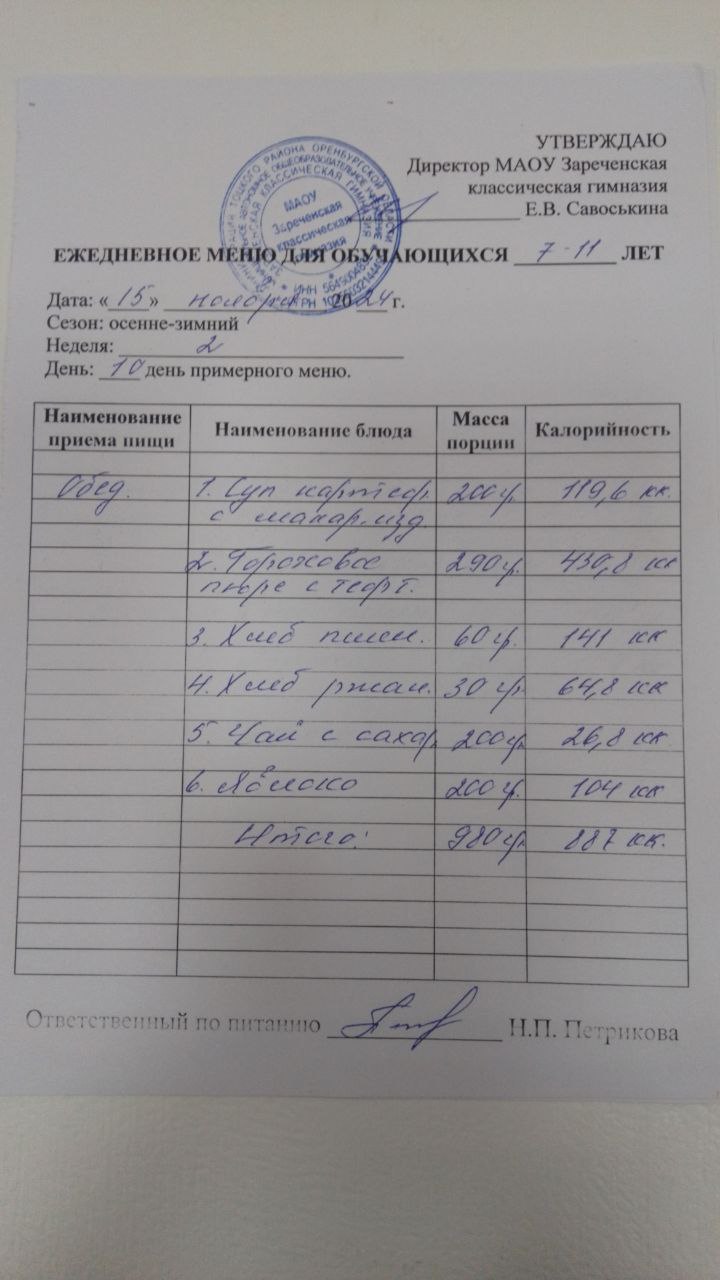 УТВЕРЖДАЮ
Директор МАОУ Зареченская
классическая гимназия
Е.В. Савоськина
МАОУ
Зареченская
классическая
гимназия
ЕЖЕДНЕВНОЕ МЕНЮ ДЛЯ ОБУЧАЮЩИХСЯ 7-11 ЛЕТ
Дата: «15» ноября 2024 г.
Сезон: осенне-зимний
Неделя: 2
День: 10 день примерного меню.
Наименование приема пищи Наименование блюда Масса порции Калорийность
Обед. 1. Суп картоф. 200гр. 119,6 кк.
с макар.изд.
2. Гороховое 290гр. 430,8 кк
пюре с тефт.
3. Хлеб пшен. 60гр. 141 кк
4. Хлеб ржан. 30 гр 64,8 кк
5. Чай с сахар. 200гр. 26,8 кк
6. Яблоко 200гр. 104 кк
Итого: 980гр. 887 кк.
Ответственный по питанию Н.П. Петрикова